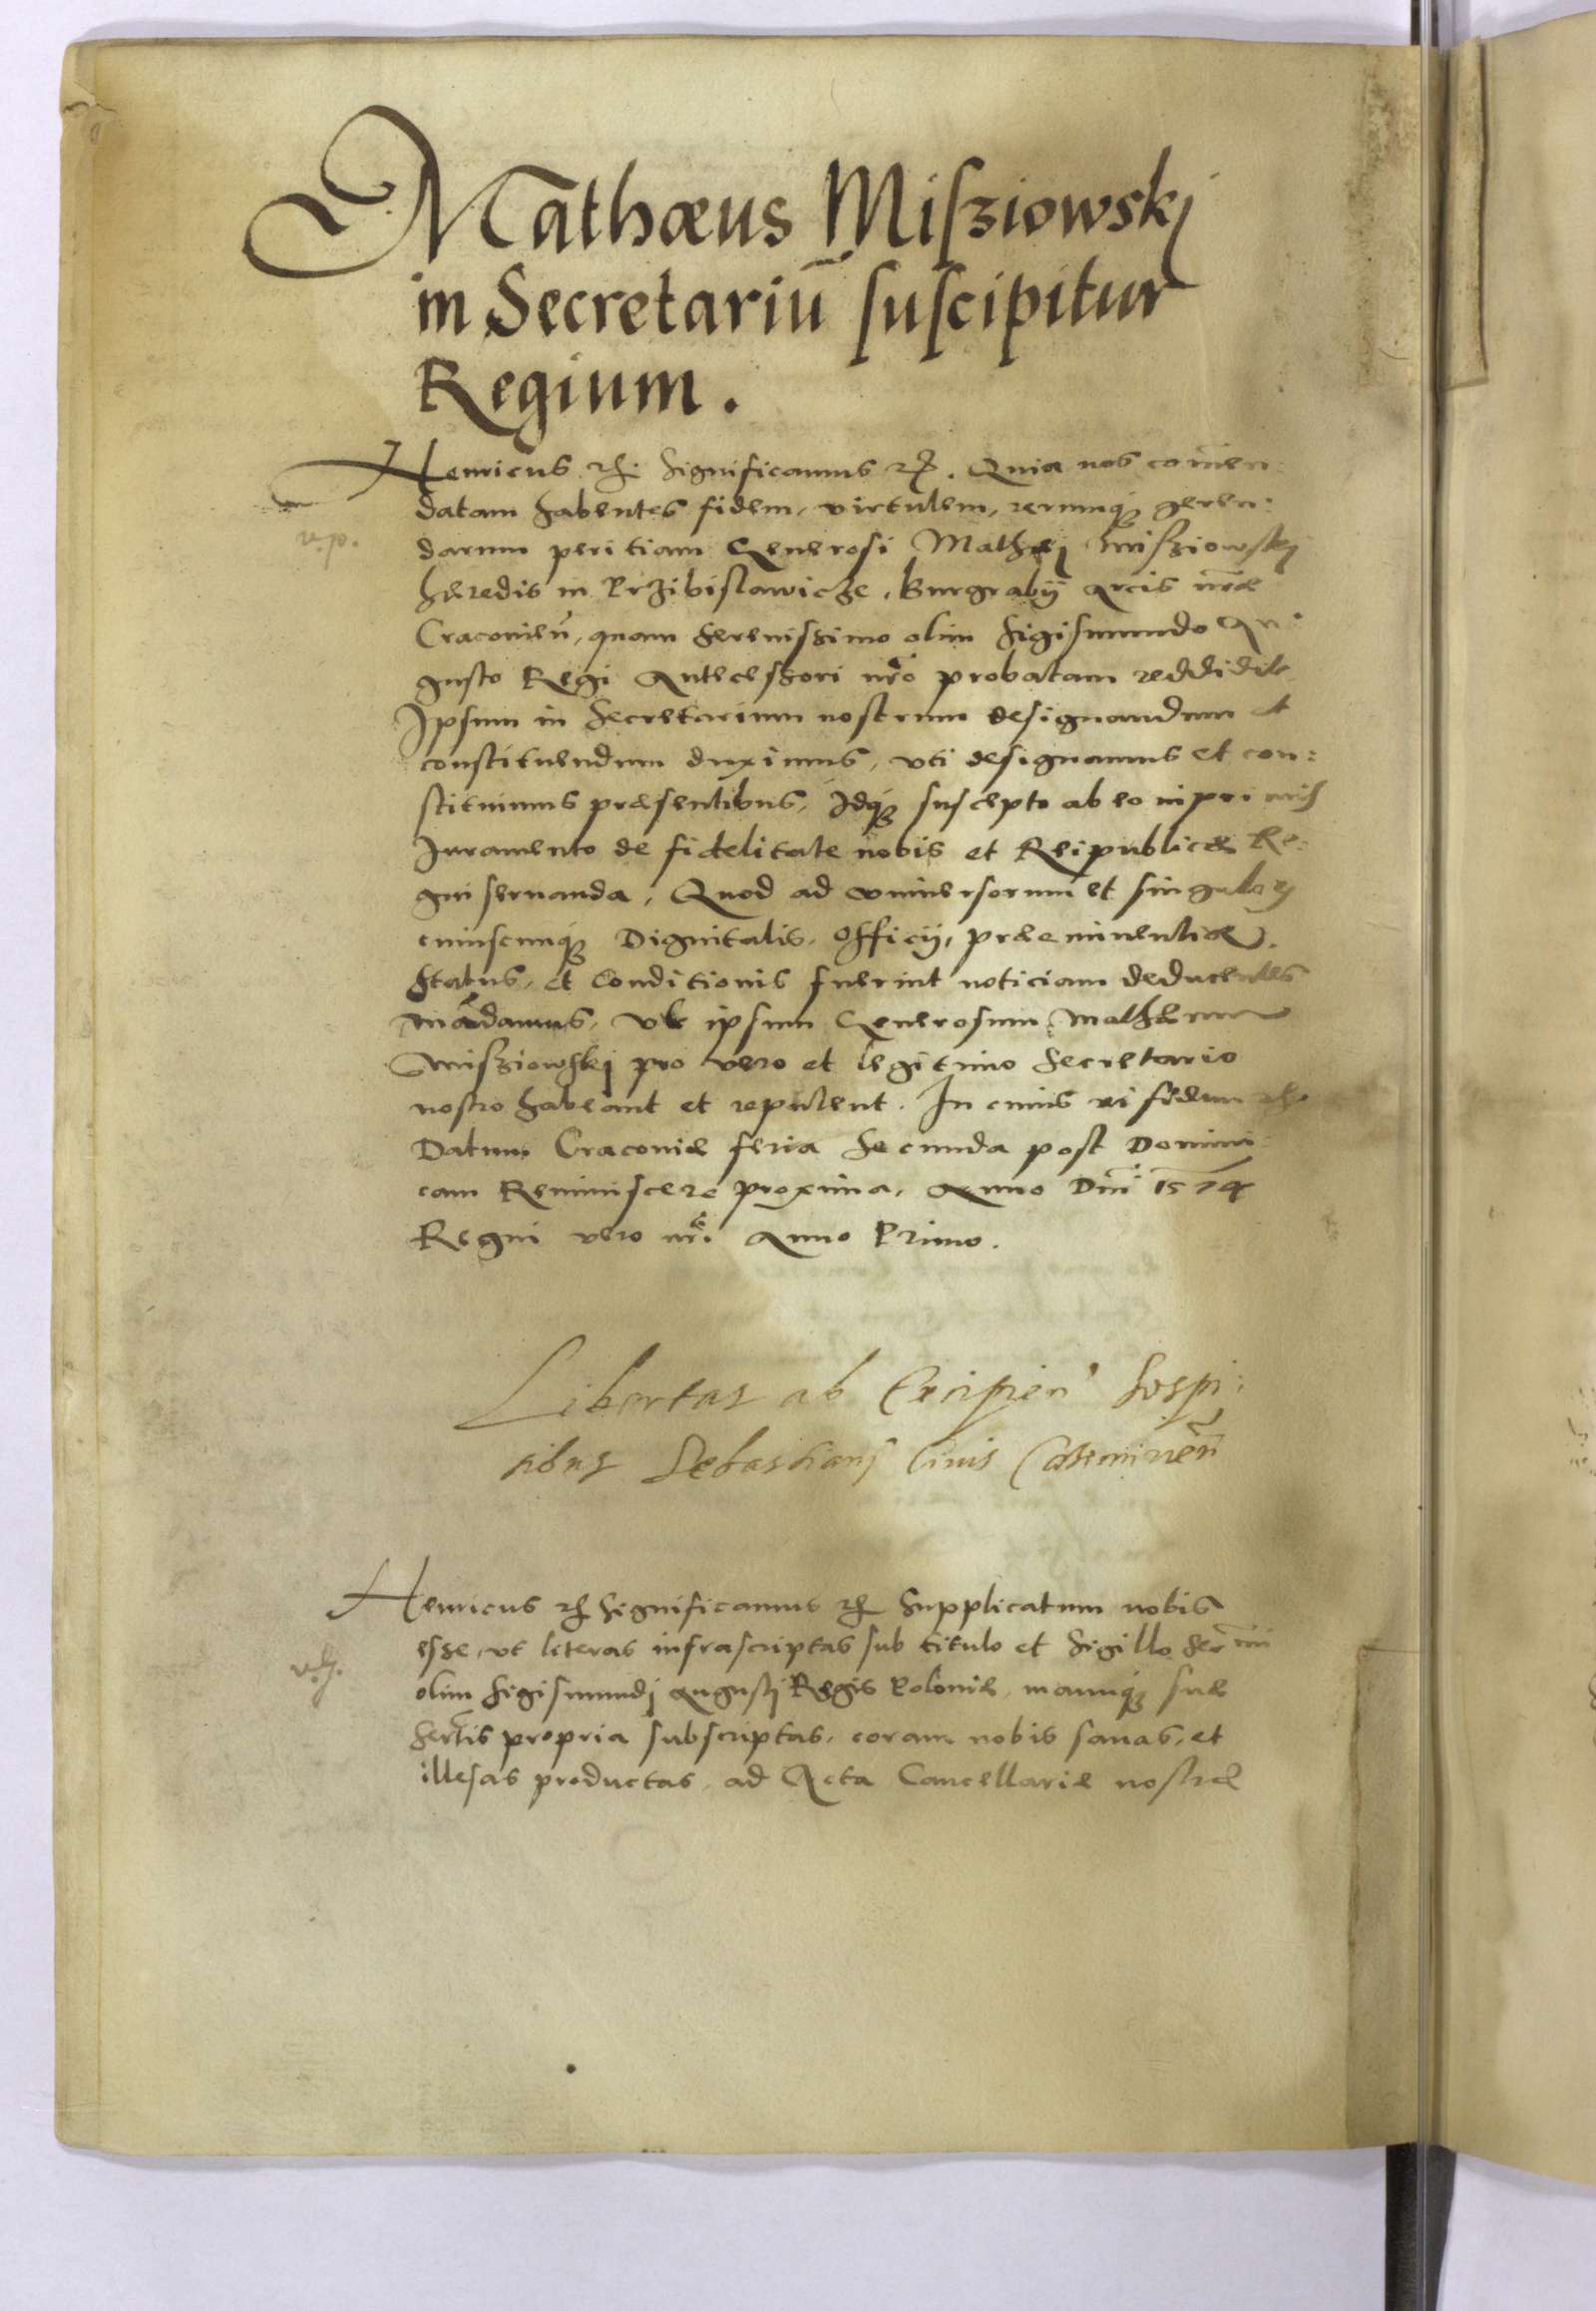 Mathæus Misziowskj
in Secretariū suscipitur
Regium.
Henricus etc. Significamus etc. Quia nos com̄en:
datam habentes fidem, virtutem, rerumq₃ geren:
v.p.
darum peritiam Generosi Mathæj Misziowskj
hæredis in Przibislawicze, Burgrabij Arcis nr̄æ
Craconien̄, quam Serenissimo olim Sigismundo Au:
gusto Regi Antecessori nr̄o probatam reddidit
Ipsum in Secretarium nostrum designandum et
constituendum duximus, vti designamus et con:
stituimus præsentibus, Idq₃ suscepto ab eo inprimis
Iuramento de fidelitate nobis et Reipublicæ Re:
gni seruanda, Quod ad vniuersorum et singulorꝝ
cuiuscunq₃ Dignitatis, Officij, præeminentiæ,
Status, et Conditionis fuerint noticiam deducentes
mādamus, vt ipsum Generosum Mathæum
Misziowskj pro vero et legitimo Secretario
nostro habeant et reputent. In cuius rei fidem etc
Datum Cracoviæ feria Secunda post Domini:
cam Reminiscere proxima, Anno Dn̄i 1574
Regni vero nr̄i Anno Primo.
Libertas ab Excipien̄ hospi:
tibus Sebastianj Ciuis
Henricus etc Significamus etc Supplicatum nobis
esse, vt literas infrascriptas sub titulo et Sigillo Ser̄mi
v.h.
olim Sigismundj Augustj Regis Poloniæ, manuq₃ suæ
Sertis propria subscriptas, coram nobis sanas, et
illesas productas, ad Acta Cancellariæ nostræ